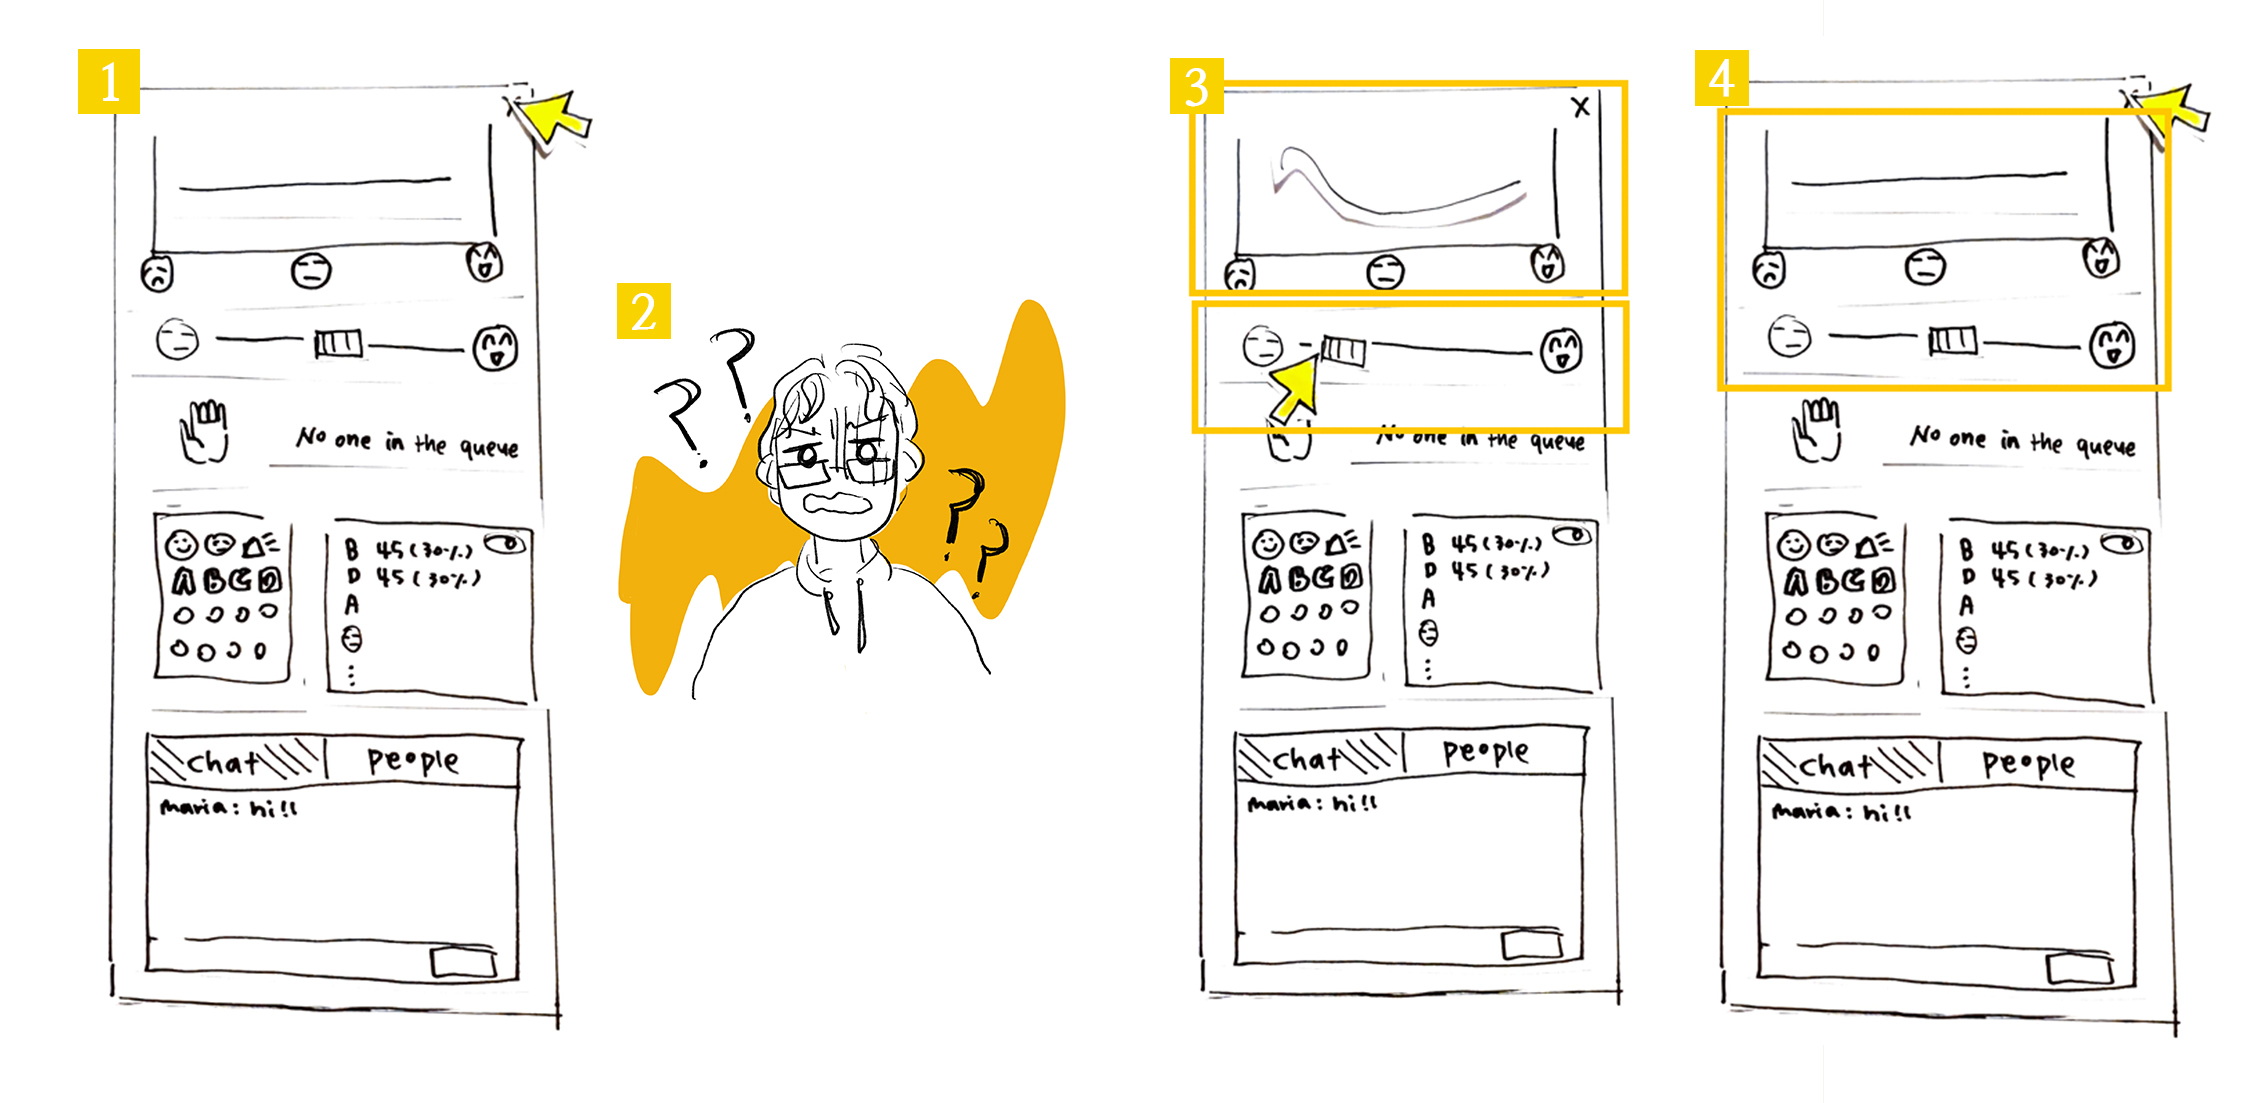 1
x
No one in the queue
B 45 (30%)
D 45 (30%)
A
⋮
A B C D
chat people
maria: hi!!
2
? ?
? ?
3
x
No one in the queue
B 45 (30%)
D 45 (30%)
A
⋮
A B C D
chat people
maria: hi!!
4
No one in the queue
B 45 (30%)
D 45 (30%)
A
⋮
A B C D
chat people
maria: hi!!